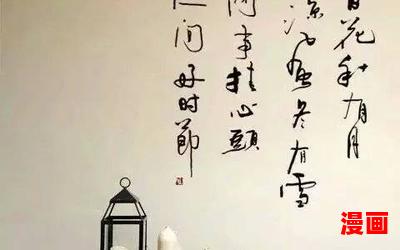 百花秋有月
凉風冬有雪
闲事挂心頭
间好时節
漫画